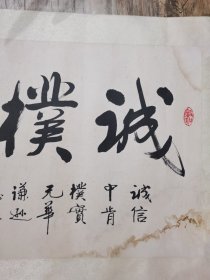 誠樸
誠信
中肯
樸實
无華
謙遜